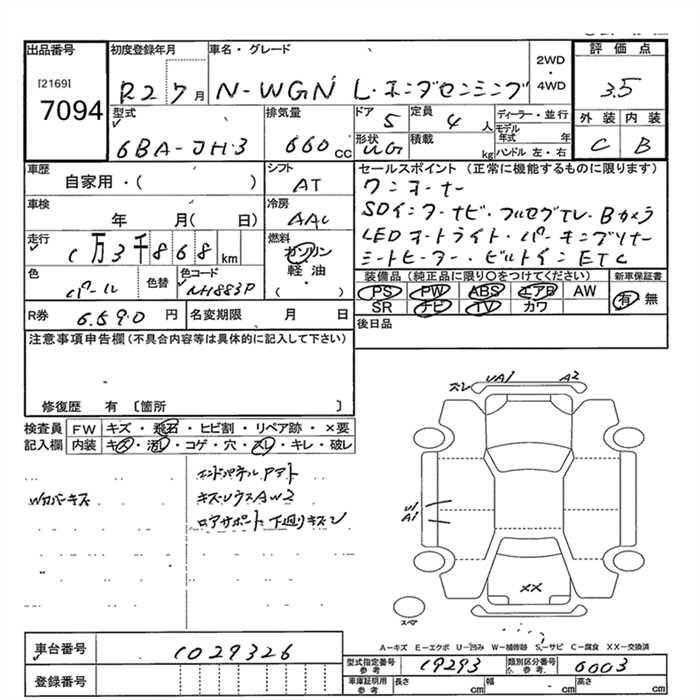 出品番号
[2169]
7094
初度登録年月
R2 7月
車名・グレード
N-WGN L・ホンダセンシング
2WD
・
4WD
評価点
3.5
外装 内装
C B
型式
6BA-JH3
排気量
660 cc
ドア 5
定員 4 人
形状
積載 kg
ディーラー・並行
モデル年式 年
ハンドル 左・右
車歴
自家用・( )
シフト
AT
車検
年 月( 日)
冷房
AAC
走行
1万3千868km
燃料
ガソリン
軽・油
( ・ )
色
パール
色替
色コード
NH883P
R券 6,590 円
名変期限 月 日
セールスポイント (正常に機能するものに限ります)
ワンオーナー
SDインターナビ・フルセグTV・Bカメラ
LEDオートライト・パーキングソナー
シートヒーター・ビルトインETC
装備品 (純正品に限り○をつけてください)
新車保証書
PS PW ABS エアB AW
SR ナビ TV カワ
有・無
後日品
注意事項申告欄 (不具合内容等は具体的に記入して下さい)
修復歴 有 〔箇所 〕
検査員記入欄
FW キズ・飛石・ヒビ割・リペア跡・×要
内装 キズ・汚レ・コゲ・穴・スレ・キレ・破レ
Wカバーキズ
エンドパネルアト
キズ・ウスAW2
ロアサポート下廻りキズ
ズレ UA1 A2
U1
A1
XX
スマ
A-キズ E-エクボ U-凹み W-補修跡 S-サビ C-腐食 XX-交換済
車台番号 1029326
登録番号
型式指定番号
参考
19293
類別区分番号
参考
0003
車庫証明用
参考
長さ cm 幅 cm 高さ cm